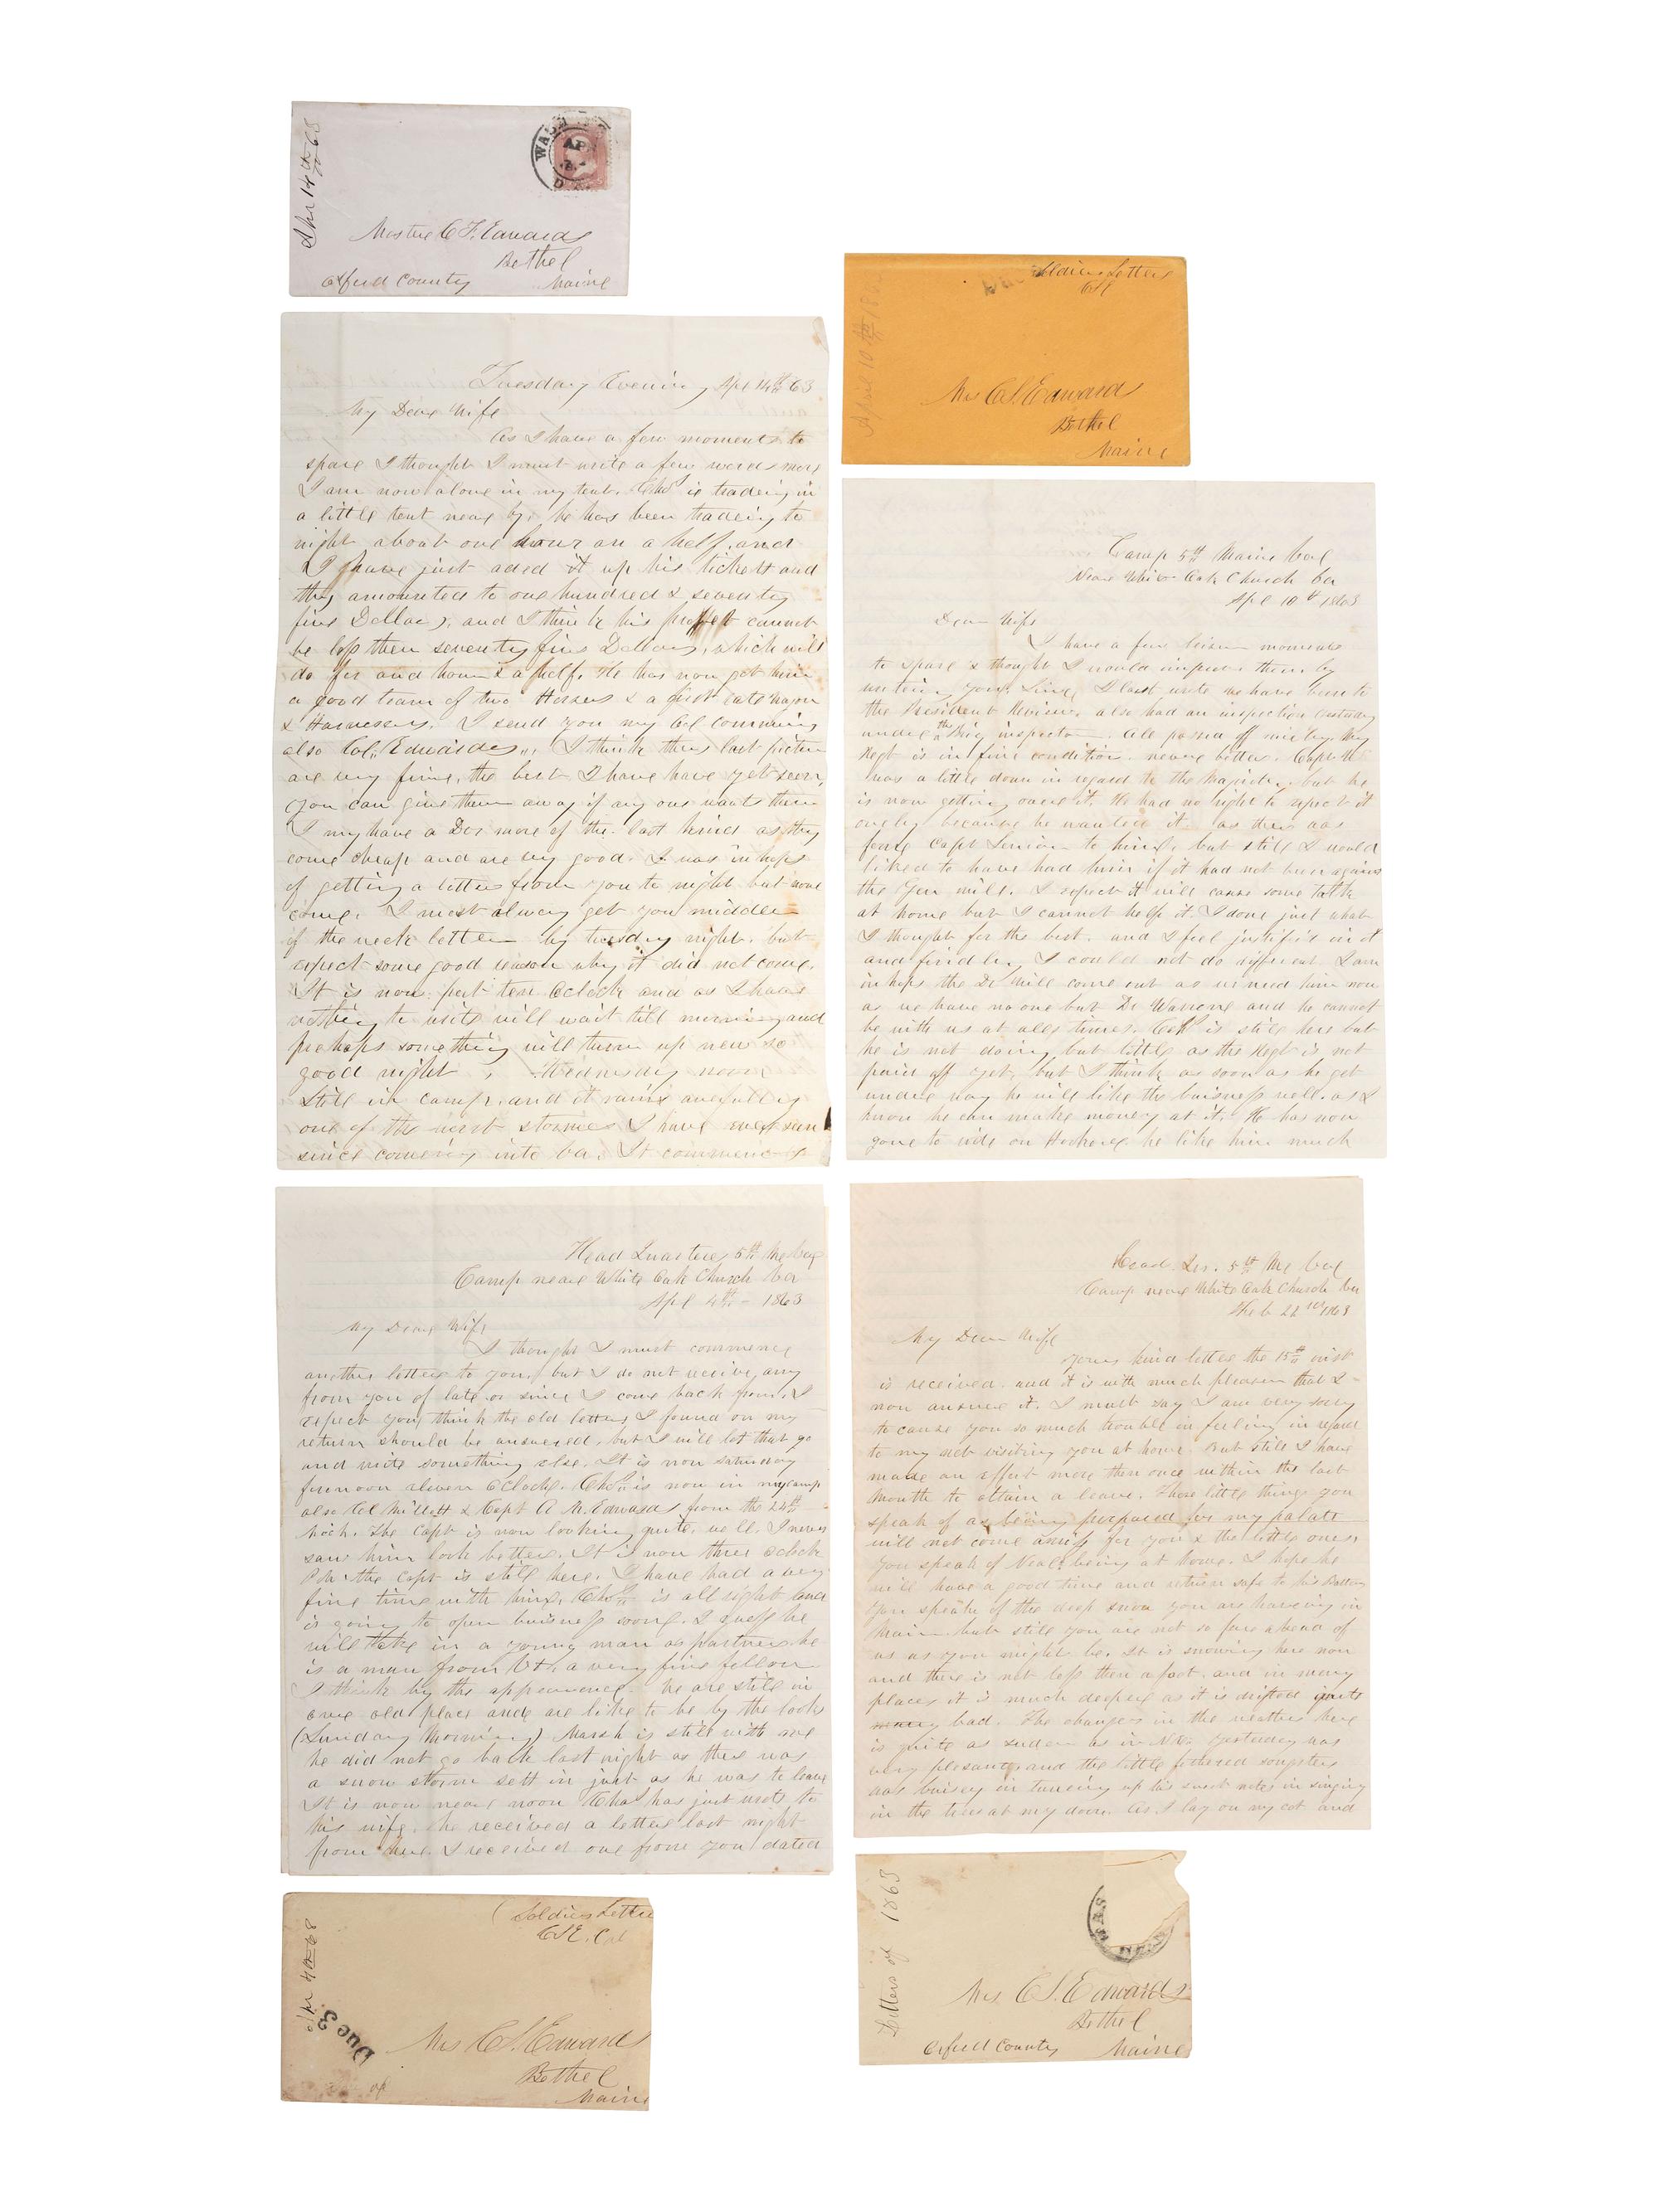 Apr 14th 63
WASH
AP
Master C F. Edwards
Bethel
Oxford County Maine
Tuesday Evening Apl 14th 63
My Dear Wife
As I have a few moments to
spare I thought I must write a few words more
I am now alone in my tent. Chs is tradeing in
a little tent near by, he has been tradeing to
night about one hour an a half, and
I have just aded it up his tickett and
they amounted to one hundred & seventy
five Dollars, and I think his proffet cannot
be less then seventy five Dollars, which will
do for and hour & a half. He has now got him
a good team of two Horses & a first rate wagon
& Harnesses. I send you my Col
also Col. Edwards, I think the last picture
are very fine, the best I have have yet seen,
you can give them away if any one wants them
I my have a Doz more of the last kind as they
come cheap and are very good. I was in hops
of getting a letter from you to night but none
come. I most alway get you middle
of the week letter by tuesday night. but
expect some good reason why it did not come.
It is now past ten Oclock and as I have
nothing to write will wait till morning and
perhaps something will turn up new so
good night, Wednesday noon
Still in camp, and it rains awefully
one of the worst stormes I have ever seen
since comeing into Va. It commenced
Soldiers Letter
April 10th 1863
Mrs C S. Edwards
Bethel
Maine
Camp 5th Maine Vol
Near White Oak Church Va
Apl 10th 1863
Dear Wife
I have a few leisure moments
to spare & thought I would improve them by
writeing you. Since I last wrote we have been to
the President Review. also had an inspection yesturday
under the Brig inspector. All passed off nicely. My
Regt is in fine condition. never better. Capt
was a little down in regard to the Majority, but he
is now getting over it. He had no right to expect it
only because he wanted it. as there was
four Capt Senior to him, but still I would
liked to have had him if it had not been against
the Gen will. I expect it will cause some talk
at home but I cannot help it. I done just what
I thought for the best. and I feel justified in it
and find by I could not do different. I am
in hops the Dr will come out as we need him now
as we have no one but Dr Warren and he cannot
be with us at alls times. Chs is still here but
he is not doing but little as the Regt is not
paid off yet, but I think as soon as he get
under way he will like the buisness well. as I
know he can make money at it. He has now
gone to ride on Horseback he like him much
Head Quarters 5th Me Reg
Camp near White Oak Church Va
Apl 4th - 1863
My Dear Wife
I thought I must commence
another letter to you, but I do not receive any
from you of late or since I come back from. I
expect you think the old letters I found on my
return should be answered, but I will let that go
and write something else. It is now saturday
forenoon eleven Oclock. Chs is now in my camp
also Col Millett & Capt A. M. Edwards from the 24th
Mich. The Capt is now looking quite well. I never
saw him look better. It is now three oclock
P.M. the Capt is still here. I have had a very
fine time with him. Chs is all right and
is going to open buisness soon. I guess he
will take in a young man as partner. he
is a man from Vt. a very fine fellow
I think by the appearance. We are still in
our old place and are like to be by the looks
(Sunday Morning) Marsh is still with me
he did not go back last night as there was
a snow storm sett in just as he was to leave
It is now near noon Chas has just wrote to
his wife. he received a letter last night
from her. I received one from you dated
Head Qrs. 5th Me Vol
Camp near White Oak Church Va
Feb 22nd 1863
My Dear Wife
Your kind letter the 15th inst
is received. and it is with much pleasure that I
now answer it. I must say I am very sorry
to cause you so much trouble in feeling in regard
to my not visiting you at home. But still I have
made an effort more then once within the last
Month to obtain a leave. Those little things you
speak of as being prepared for my palate
will not come amiss for you & the little ones.
You speak of Neal being at home. I hope he
will have a good time and return safe to his Battery
You speake of the deep snow you are haveing in
Maine but still you are not so fare ahead of
us as you might be. It is snowing here now
and there is not less then a foot, and in many
places it is much deeper as it is drifted quite
bad. The changes in the weather here
is quite as suden as in N.E. Yesterday was
very plesant, and the little fethered songsters
was buisey in tuneing up his sweet notes in singing
in the trees at my door. As I lay on my cot and
(Soldiers Letter
C.S.E. Col
Apr 4th 63
Due 3
Mrs C S. Edwards
Bethel
Maine
Letters of 1863
WAS
Mrs. C S. Edwards
Bethel
Oxford County Maine